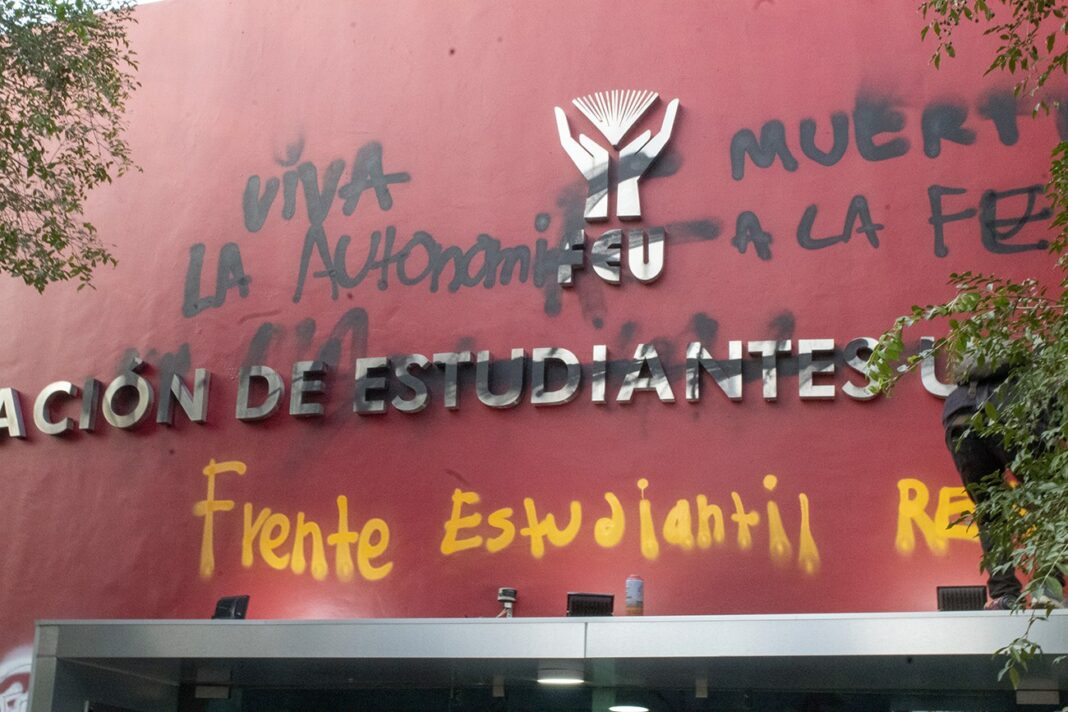 VIVA
LA AUTONOMI
MUERTE
A LA FE
FEU
ACIÓN DE ESTUDIANTES U
Frente Estudiantil RE